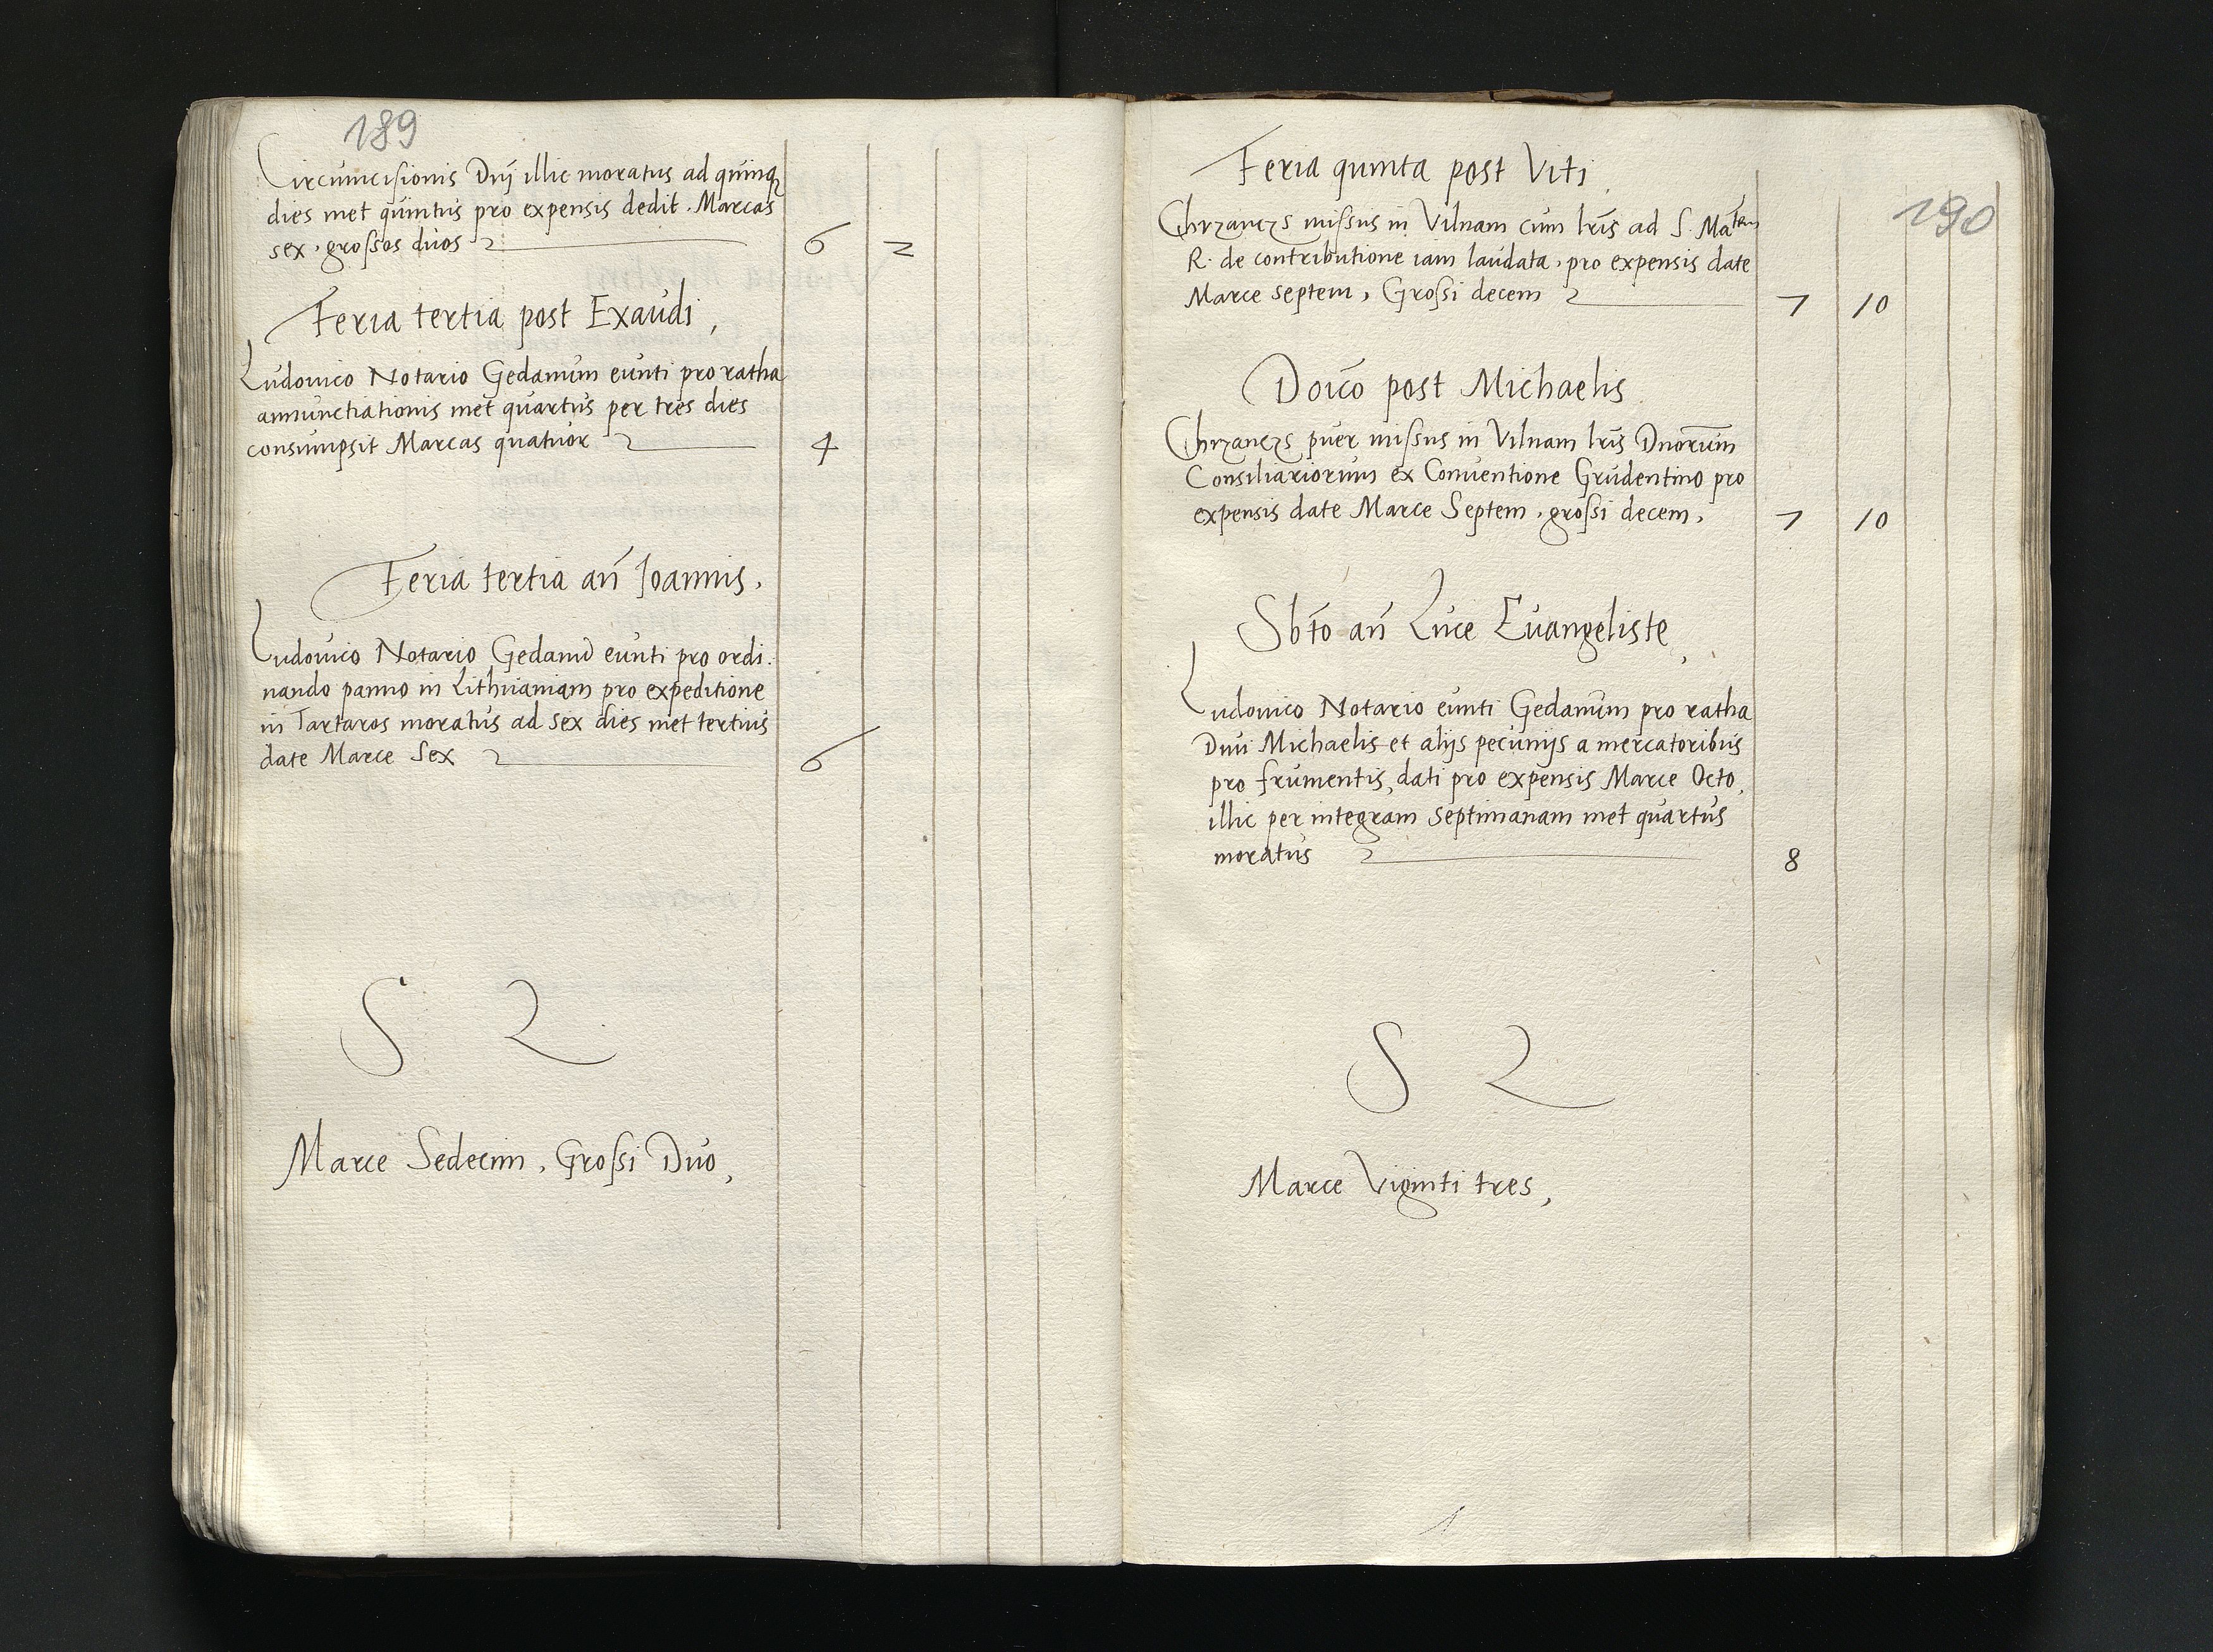 189
Circumcisionis Dnȷ illic moratus ad quinqꝫ
dies met quintus pro expensis dedit . Marcas
sex , grossos duos 6 2
Feria tertia post Exaudi ,
Ludouico Notario Gedanum eunti pro ratha
annunctiationis met quartus per tres dies
consumpsit Marcas quatuor 4
Feria tertia an̄ Ioannis ,
Ludouico Notario Gedanū eunti pro ordi:
nando panno in Lithuaniam pro expeditione
in Tartaros moratus ad sex dies met tertius
date Marce Sex 6
S
Marce Sedecim , Grossi Duo ,
190
Feria quinta post Viti ,
Chrzanczs missus in Vilnam cum lr̄is ad S. Maᵗᵉᵐ
R. de contributione iam laudata , pro expensis date
Marce septem , Grossi decem 7 10
Doīco post Michaelis
Chrzanczs puer missus in Vilnam lr̄is Dnorum̄
Consiliariorum ex Conuentione Grudentino pro
expensis date Marce Septem , grossi decem , 7 10
Sbt̄o an̄ Luce Euangeliste ,
Ludouico Notario eunti Gedanum pro ratha
Diui Michaelis et alijs pecunijs a mercatoribus
pro frumentis, dati pro expensis Marce Octo ,
illic per integram septimanam met quartus
moratus 8
S
Marce Viginti tres ,